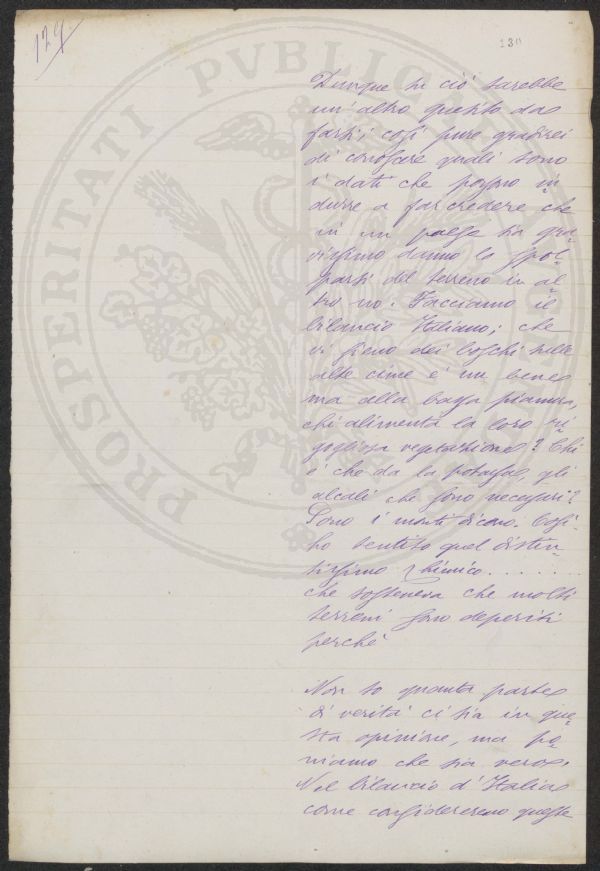 129
130
Dunque su ciò sarebbe
un' altro quesito da
farsi; così pure gradirei
di conoscere quali sono
i dati che possono in=
durre a far credere che
in un paese sia gra=
vissimo danno lo spol=
parsi del terreno in al=
tro no. Facciamo il
bilancio Italiano; che
vi sieno dei boschi nelle
alte cime è un bene
ma alla bassa pianura,
chi alimenta la loro ri=
gogliosa vegetazione? Chi
è che da la potassa, gli
alcali che sono necessari?
Sono i monti dicono. Così
ho sentito quel distin=
tissimo Chimico . . . . . . . .
che sosteneva che molti
terreni sono deperiti
perchè
Non so quanta parte
di verità ci sia in que=
sta opinione, ma po=
niamo che sia vero.
Nel bilancio d' Italia
come considereremo queste
PROSPERITATI PVBLICAE